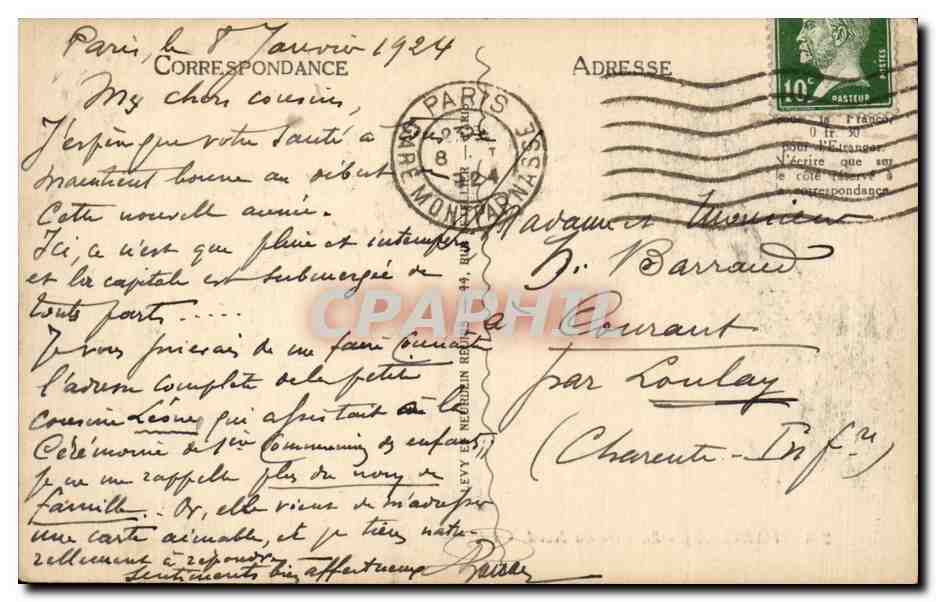 Paris, le 8 Janvier 1924
CORRESPONDANCE
Mes chers cousins,
J'espère que votre santé a tous se
maintient bonne au début
Cette nouvelle année.
Ici, ce n'est que pluie et intempérie
et la capitale est submergée de
toute parts .....
Je vous prierais de me faire Connaitre
l'adresse complète de la petite
cousine Léone qui assistait à la
Cérémonie de 1ère Communion des enfants,
je ne me rappelle plus du nom de
famille. Or, elle vient de m'adresser
une carte aimable, et je tiens natu-
rellement à répondre
Sentiments bien affectueux
LEVY ET NEURDEIN REUNIS 44, RUE
PARIS
GARE MONTPARNASSE
8
24
ADRESSE
10c
POSTES
PASTEUR
la France,
0 fr. 30
pour l'Etranger.
N'écrire que sur
le côté réservé à
la correspondance.
Madame et Monsieur
H. Barraud
à Courant
par Loulay
(Charente-Infre)
CPAPHIL